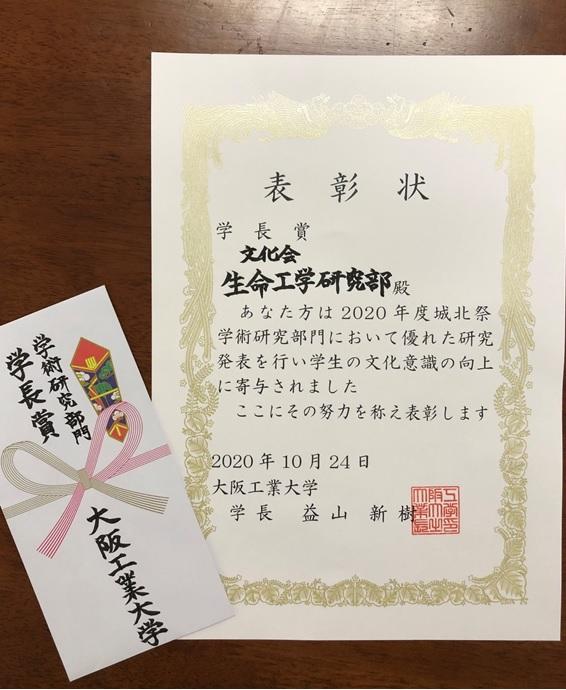 表彰状
学長賞
文化会
生命工学研究部殿
あなた方は2020年度城北祭
学術研究部門において優れた研究
発表を行い学生の文化意識の向上
に寄与されました
ここにその努力を称え表彰します
2020年10月24日
大阪工業大学
学長 益山 新樹
学術研究部門
学長賞
大阪工業大学